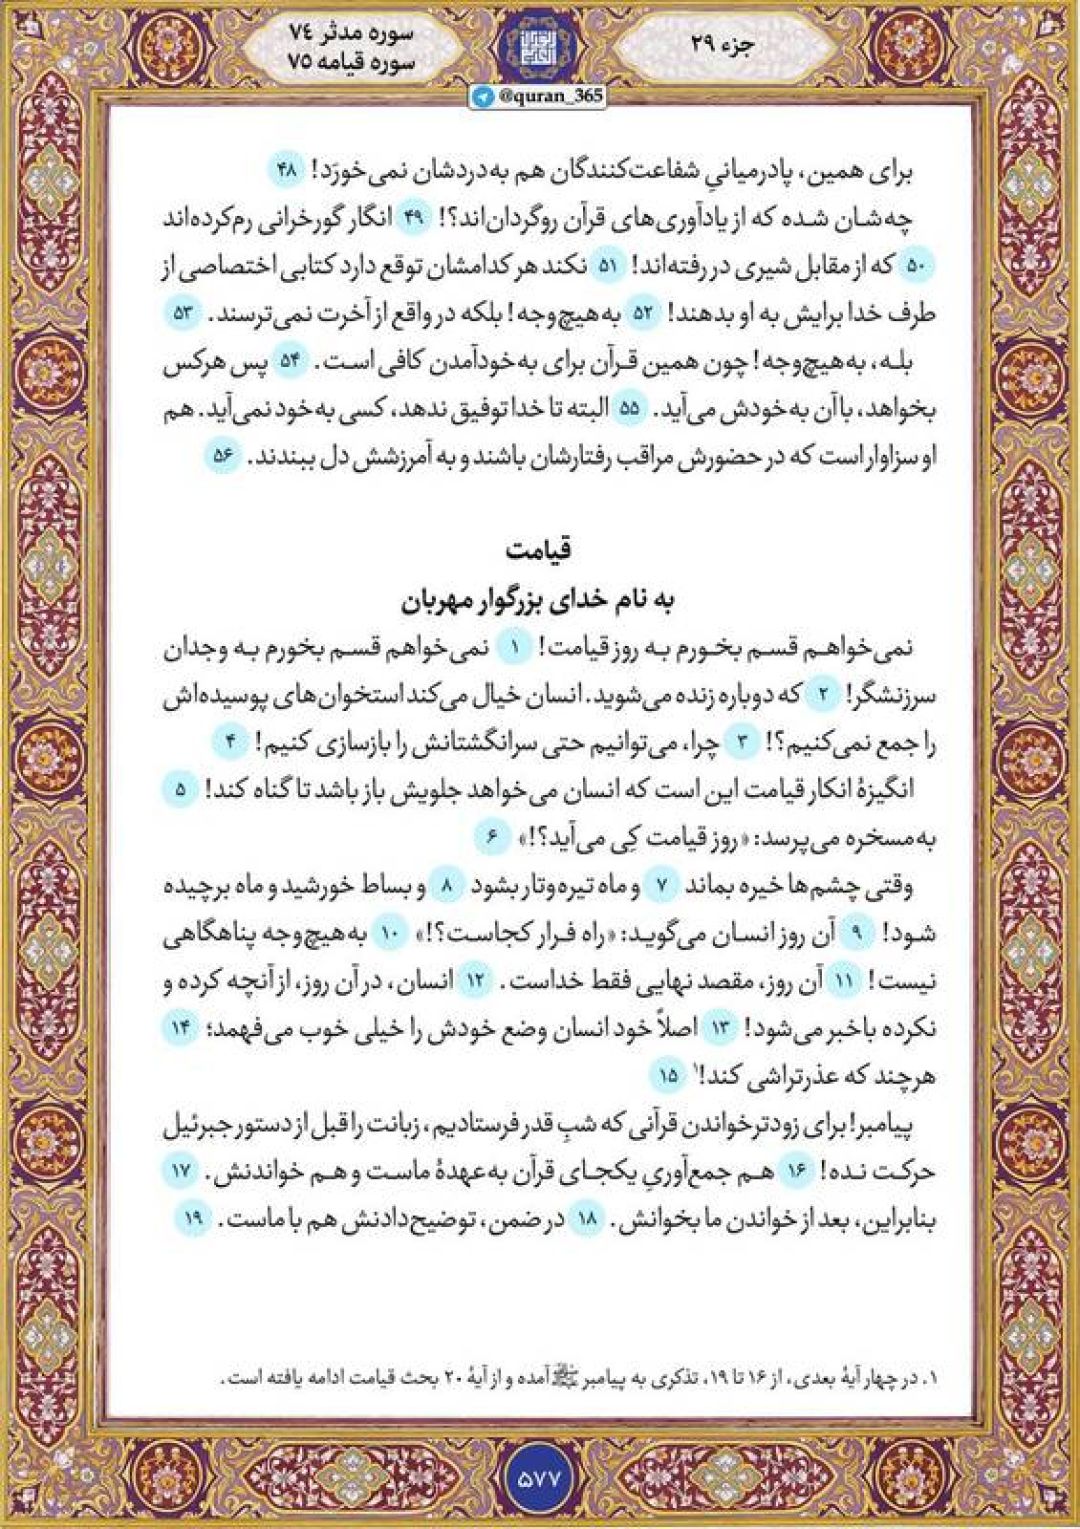 جزء ۲۹
سوره مدثر ۷۴
سوره قیامه ۷۵
@quran_365
برای همین، پادرمیانیِ شفاعت‌کنندگان هم به‌دردشان نمی‌خورَد! ۴۸
چه‌شان شده که از یادآوری‌های قرآن روگردان‌اند؟! ۴۹ انگار گورخرانی رم‌کرده‌اند
۵۰ که از مقابل شیری در رفته‌اند! ۵۱ نکند هر کدامشان توقع دارد کتابی اختصاصی از
طرف خدا برایش به او بدهند! ۵۲ به‌هیچ‌وجه! بلکه در واقع از آخرت نمی‌ترسند. ۵۳
بله، به‌هیچ‌وجه! چون همین قرآن برای به‌خودآمدن کافی است. ۵۴ پس هرکس
بخواهد، با آن به‌خودش می‌آید. ۵۵ البته تا خدا توفیق ندهد، کسی به‌خود نمی‌آید. هم
او سزاوار است که در حضورش مراقب رفتارشان باشند و به آمرزشش دل ببندند. ۵۶
قیامت
به نام خدای بزرگوار مهربان
نمی‌خواهم قسم بخورم به روز قیامت! ۱ نمی‌خواهم قسم بخورم به وجدان
سرزنشگر! ۲ که دوباره زنده می‌شوید. انسان خیال می‌کند استخوان‌های پوسیده‌اش
را جمع نمی‌کنیم؟! ۳ چرا، می‌توانیم حتی سرانگشتانش را بازسازی کنیم! ۴
انگیزهٔ انکار قیامت این است که انسان می‌خواهد جلویش باز باشد تا گناه کند! ۵
به‌مسخره می‌پرسد: «روز قیامت کِی می‌آید؟!» ۶
وقتی چشم‌ها خیره بماند ۷ و ماه تیره‌وتار بشود ۸ و بساط خورشید و ماه برچیده
شود! ۹ آن روز انسان می‌گوید: «راه فرار کجاست؟!» ۱۰ به‌هیچ‌وجه پناهگاهی
نیست! ۱۱ آن روز، مقصد نهایی فقط خداست. ۱۲ انسان، در آن روز، از آنچه کرده و
نکرده باخبر می‌شود! ۱۳ اصلاً خود انسان وضع خودش را خیلی خوب می‌فهمد؛ ۱۴
هرچند که عذرتراشی کند!۱ ۱۵
پیامبر! برای زودترخواندن قرآنی که شبِ قدر فرستادیم، زبانت را قبل از دستور جبرئیل
حرکت نده! ۱۶ هم جمع‌آوریِ یکجای قرآن به‌عهدهٔ ماست و هم خواندنش. ۱۷
بنابراین، بعد از خواندن ما بخوانش. ۱۸ در ضمن، توضیح‌دادنش هم با ماست. ۱۹
۱. در چهار آیهٔ بعدی، از ۱۶ تا ۱۹، تذکری به پیامبر ﷺ آمده و از آیهٔ ۲۰ بحث قیامت ادامه یافته است.
۵۷۷